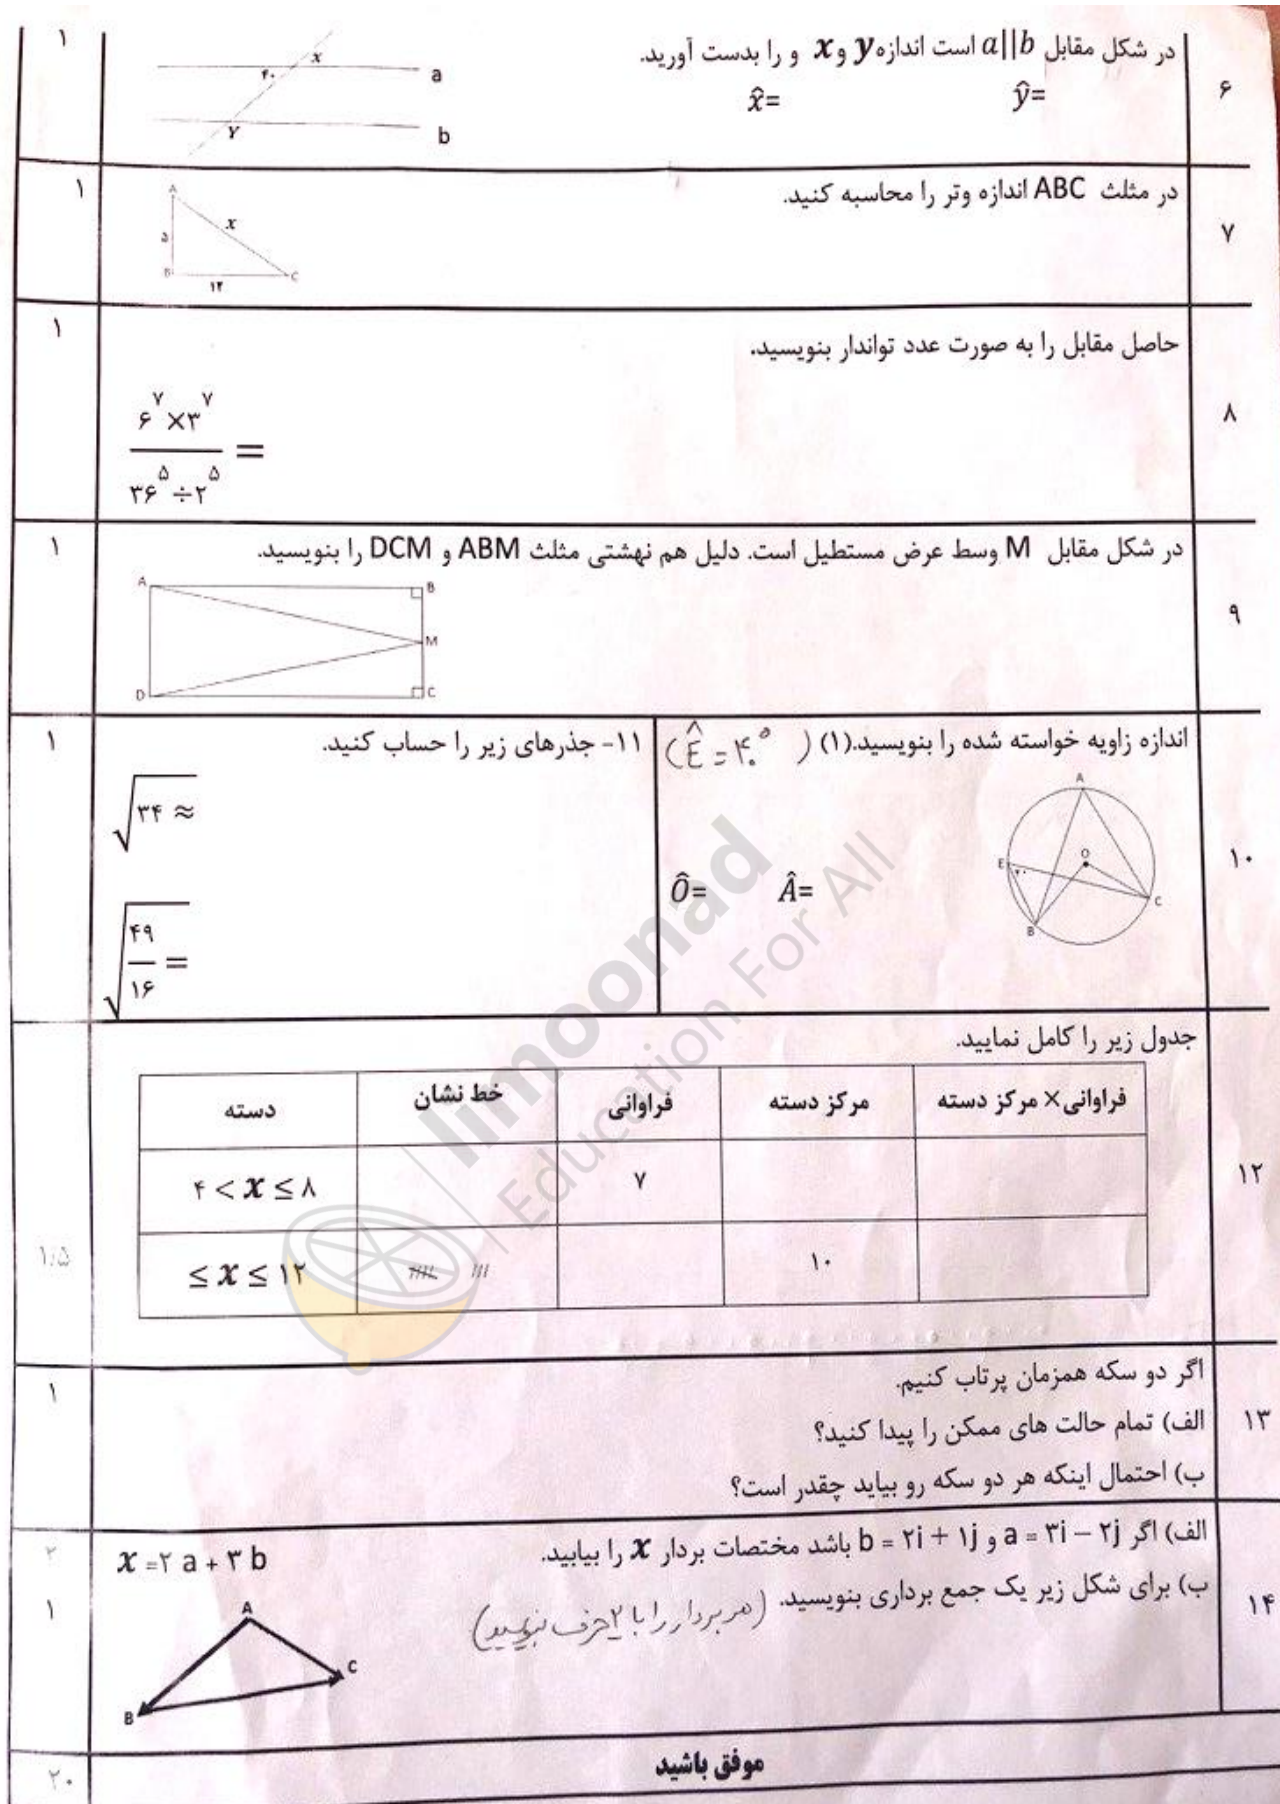 ۱
در شکل مقابل a||b است اندازه y و x و را بدست آورید.
۶
x̂=
ŷ=
x
۴۰
a
Y
b
۱
در مثلث ABC اندازه وتر را محاسبه کنید.
۷
A
x
۵
B
۱۲
C
۱
حاصل مقابل را به صورت عدد تواندار بنویسید.
۸
۶^۷ × ۳^۷
۳۶^۵ ÷ ۲^۵
=
۱
در شکل مقابل M وسط عرض مستطیل است. دلیل هم نهشتی مثلث ABM و DCM را بنویسید.
۹
A
B
M
D
C
اندازه زاویه خواسته شده را بنویسید.(۱) (Ê = ۴۰°)
۱۰
A
O
E
C
B
Ô=
Â=
۱
۱۱- جذرهای زیر را حساب کنید.
√۳۴ ≈
√۴۹/۱۶ =
جدول زیر را کامل نمایید.
۱۲
۱/۵
دسته
خط نشان
فراوانی
مرکز دسته
فراوانی× مرکز دسته
۴ < x ≤ ۸
۷
≤ x ≤ ۱۲
۱۰
۱
اگر دو سکه همزمان پرتاب کنیم.
۱۳
الف) تمام حالت های ممکن را پیدا کنید؟
ب) احتمال اینکه هر دو سکه رو بیاید چقدر است؟
۲
الف) اگر a = ۳i – ۲j و b = ۲i + ۱j باشد مختصات بردار x را بیابید.
x =۲ a + ۳ b
۱
ب) برای شکل زیر یک جمع برداری بنویسید. (هر بردار را با ۲ حرف بنویسید)
۱۴
A
C
B
موفق باشید
۲۰
limoonad
Education For All